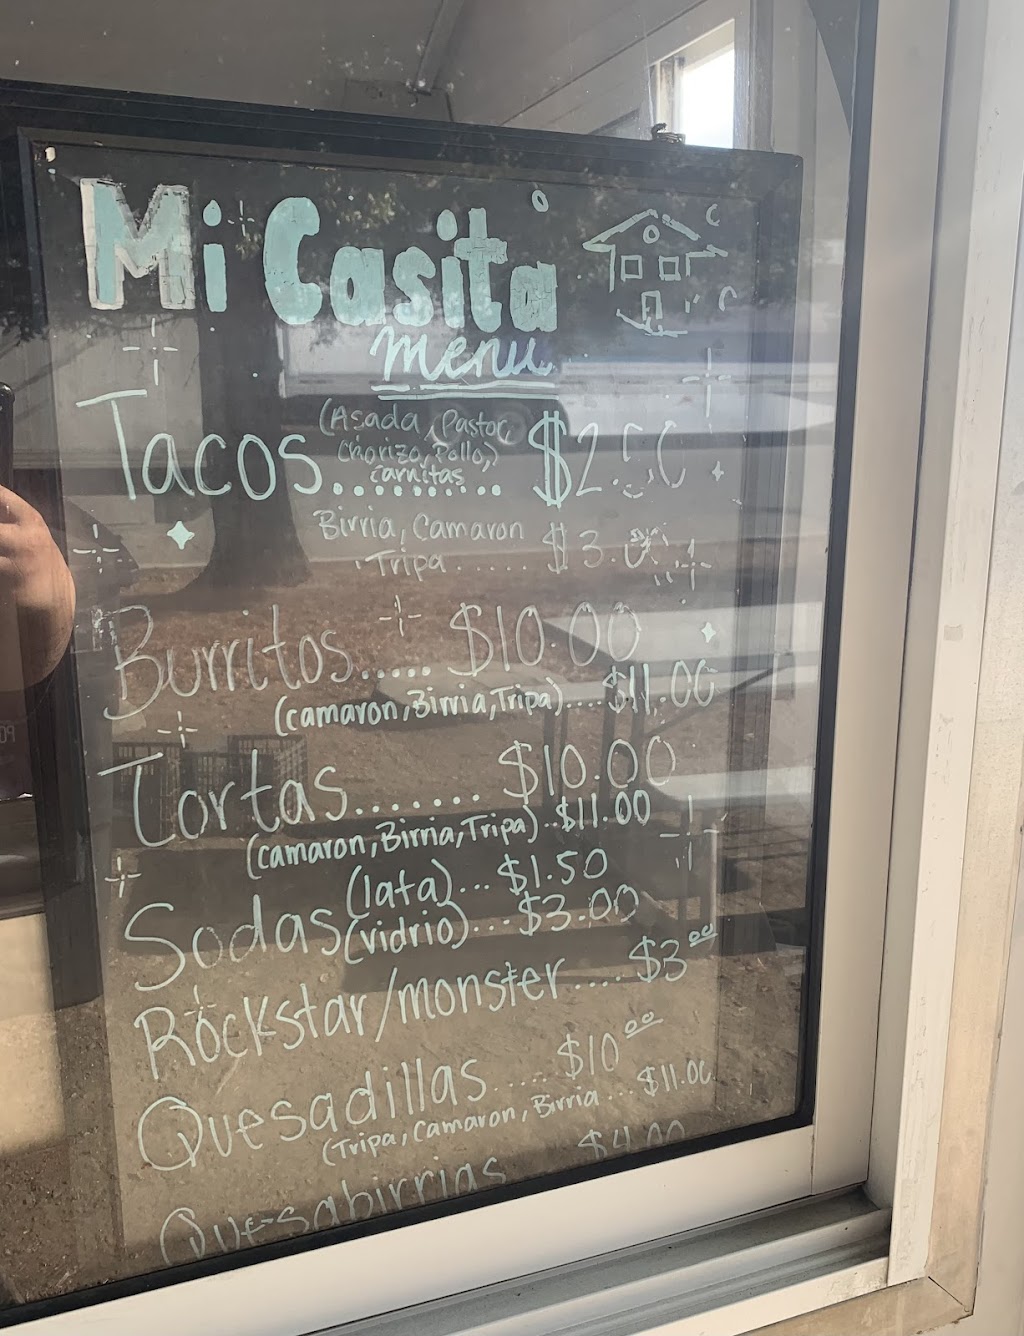 Mi Casita
menu
Tacos (Asada, Pastor, Chorizo, Pollo, Carnitas)......... $2.50
Birria, Camaron $3.00
Tripa......
Burritos..... $10.00
(camaron, Birria, Tripa)....$11.00
Tortas....... $10.00
(camaron, Birria, Tripa)..$11.00
Sodas (lata)...$1.50
(vidrio)...$3.00
Rockstar/monster....$3.00
Quesadillas.....$10.00
(Tripa, Camaron, Birria...$11.00
Quesabirrias $4.00